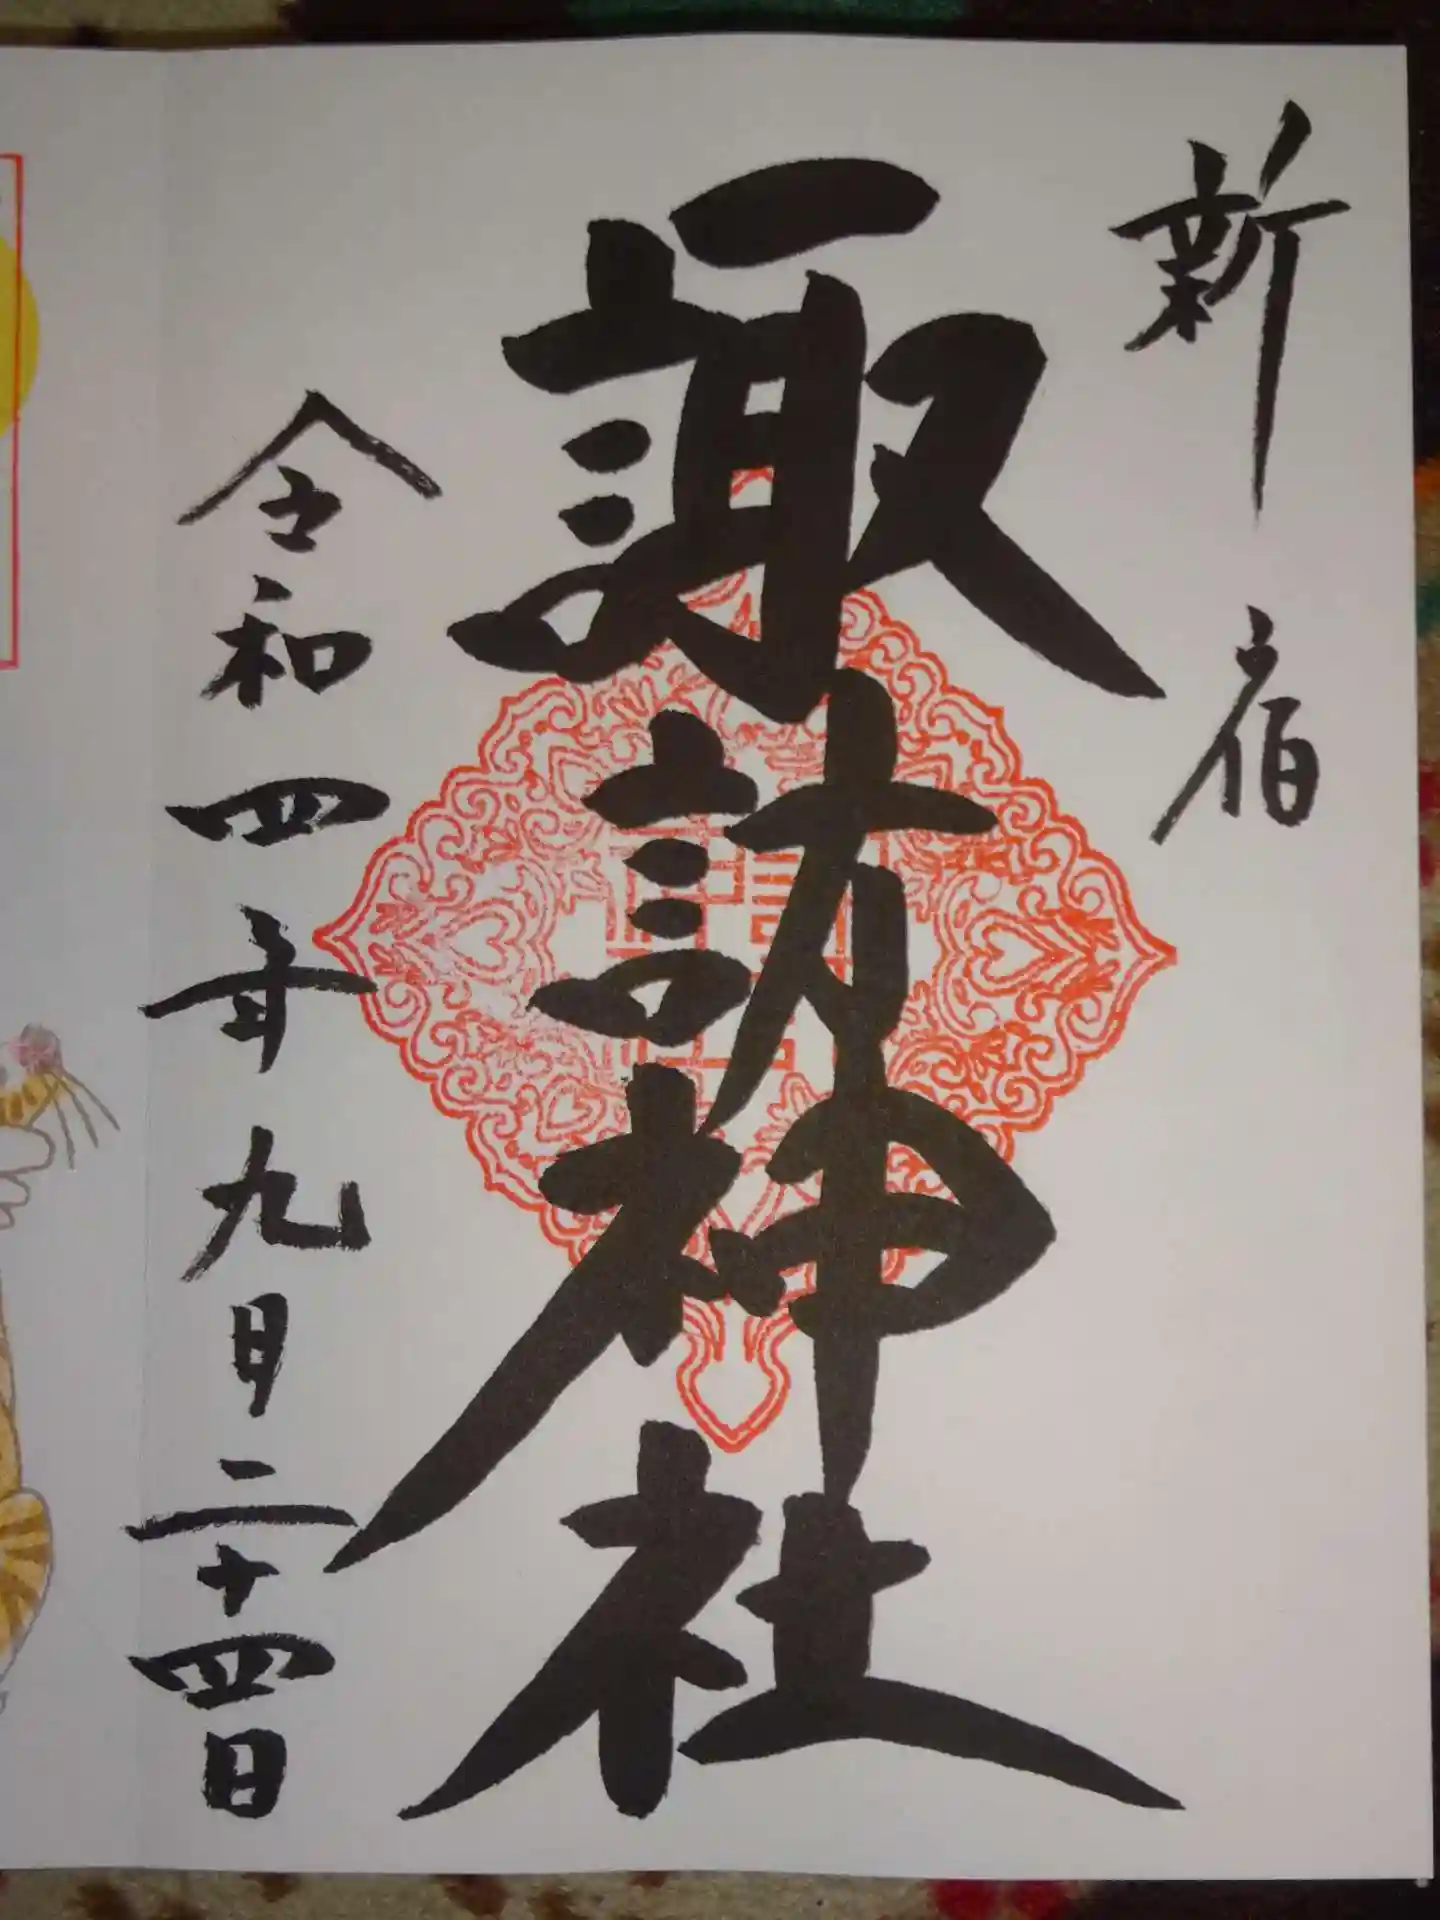 新宿
諏訪神社
令和四年九月二十四日